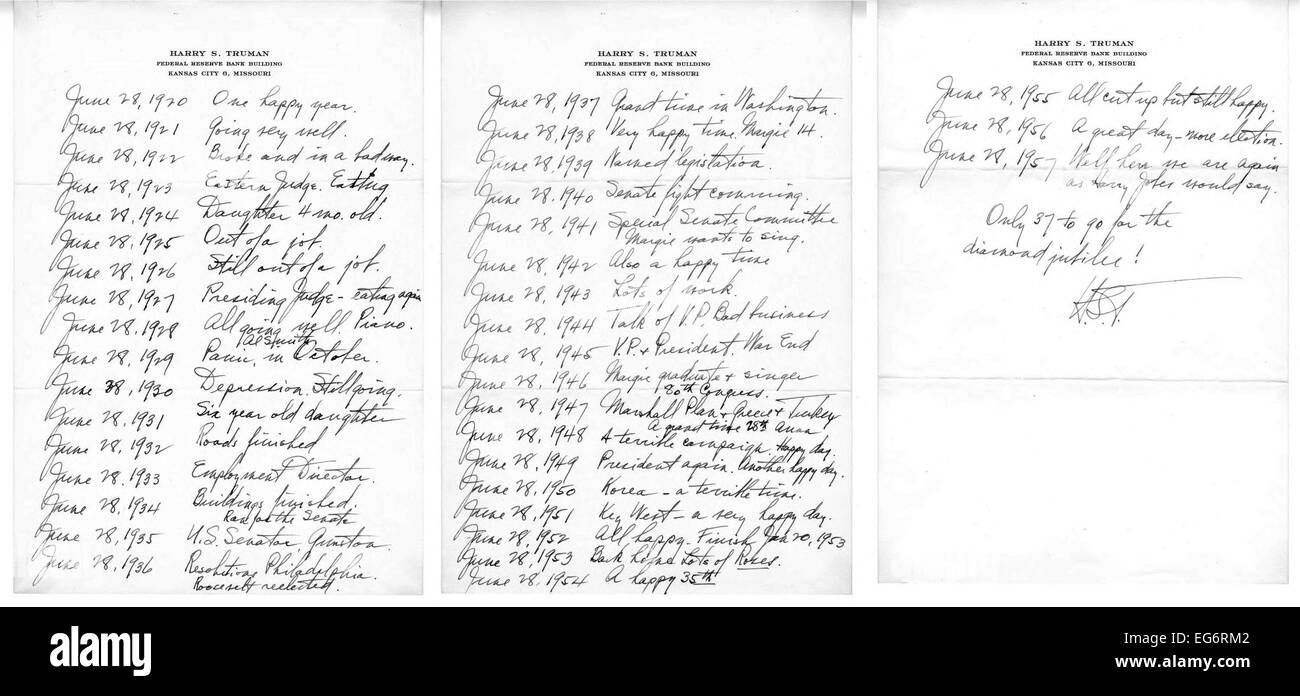 HARRY S. TRUMAN
FEDERAL RESERVE BANK BUILDING
KANSAS CITY 6, MISSOURI
June 28, 1920 One happy year.
June 28, 1921 Going very well.
June 28, 1922 Broke and in a bad way.
June 28, 1923 Eastern Judge. Eating
June 28, 1924 Daughter 4 mo. old.
June 28, 1925 Out of a job.
June 28, 1926 Still out of a job.
June 28, 1927 Presiding Judge - eating again
June 28, 1928 All going well. Piano.
Al Smith
June 28, 1929 Panic, in October.
June 28, 1930 Depression. Still going.
June 28, 1931 Six year old daughter
June 28, 1932 Roads finished
June 28, 1933 Employment Director.
June 28, 1934 Buildings finished.
Ran for the Senate
June 28, 1935 U.S. Senator Gunston.
June 28, 1936 Resolutions Philadelphia.
Roosevelt reelected.
HARRY S. TRUMAN
FEDERAL RESERVE BANK BUILDING
KANSAS CITY 6, MISSOURI
June 28, 1937 Grand time in Washington.
June 28, 1938 Very happy time. Margie 14.
June 28, 1939 Named legislation.
June 28, 1940 Senate fight comming.
June 28, 1941 Special Senate Committee
Margie wants to sing.
June 28, 1942 Also a happy time
June 28, 1943 Lots of work.
June 28, 1944 Talk of V.P. Bad business
June 28, 1945 V.P. & President. War End
June 28, 1946 Margie graduate & singer
80th Congress.
June 28, 1947 Marshall Plan & Greece & Turkey
A grand time 28th Anna
June 28, 1948 A terrible campaign. Happy day.
June 28, 1949 President again. Another happy day.
June 28, 1950 Korea - a terrible time.
June 28, 1951 Key West - a very happy day.
June 28, 1952 All happy. Finish Jan 20, 1953
June 28, 1953 Back home Lots of Roses.
June 28, 1954 A happy 35th
HARRY S. TRUMAN
FEDERAL RESERVE BANK BUILDING
KANSAS CITY 6, MISSOURI
June 28, 1955 All cut up but still happy.
June 28, 1956 A great day - more elation.
June 28, 1957 Well here we are again
as Harry Jobes would say.
Only 37 to go for the
diamond jubilee!
H.S.T.
alamy stock photo
EG6RM2
www.alamy.com